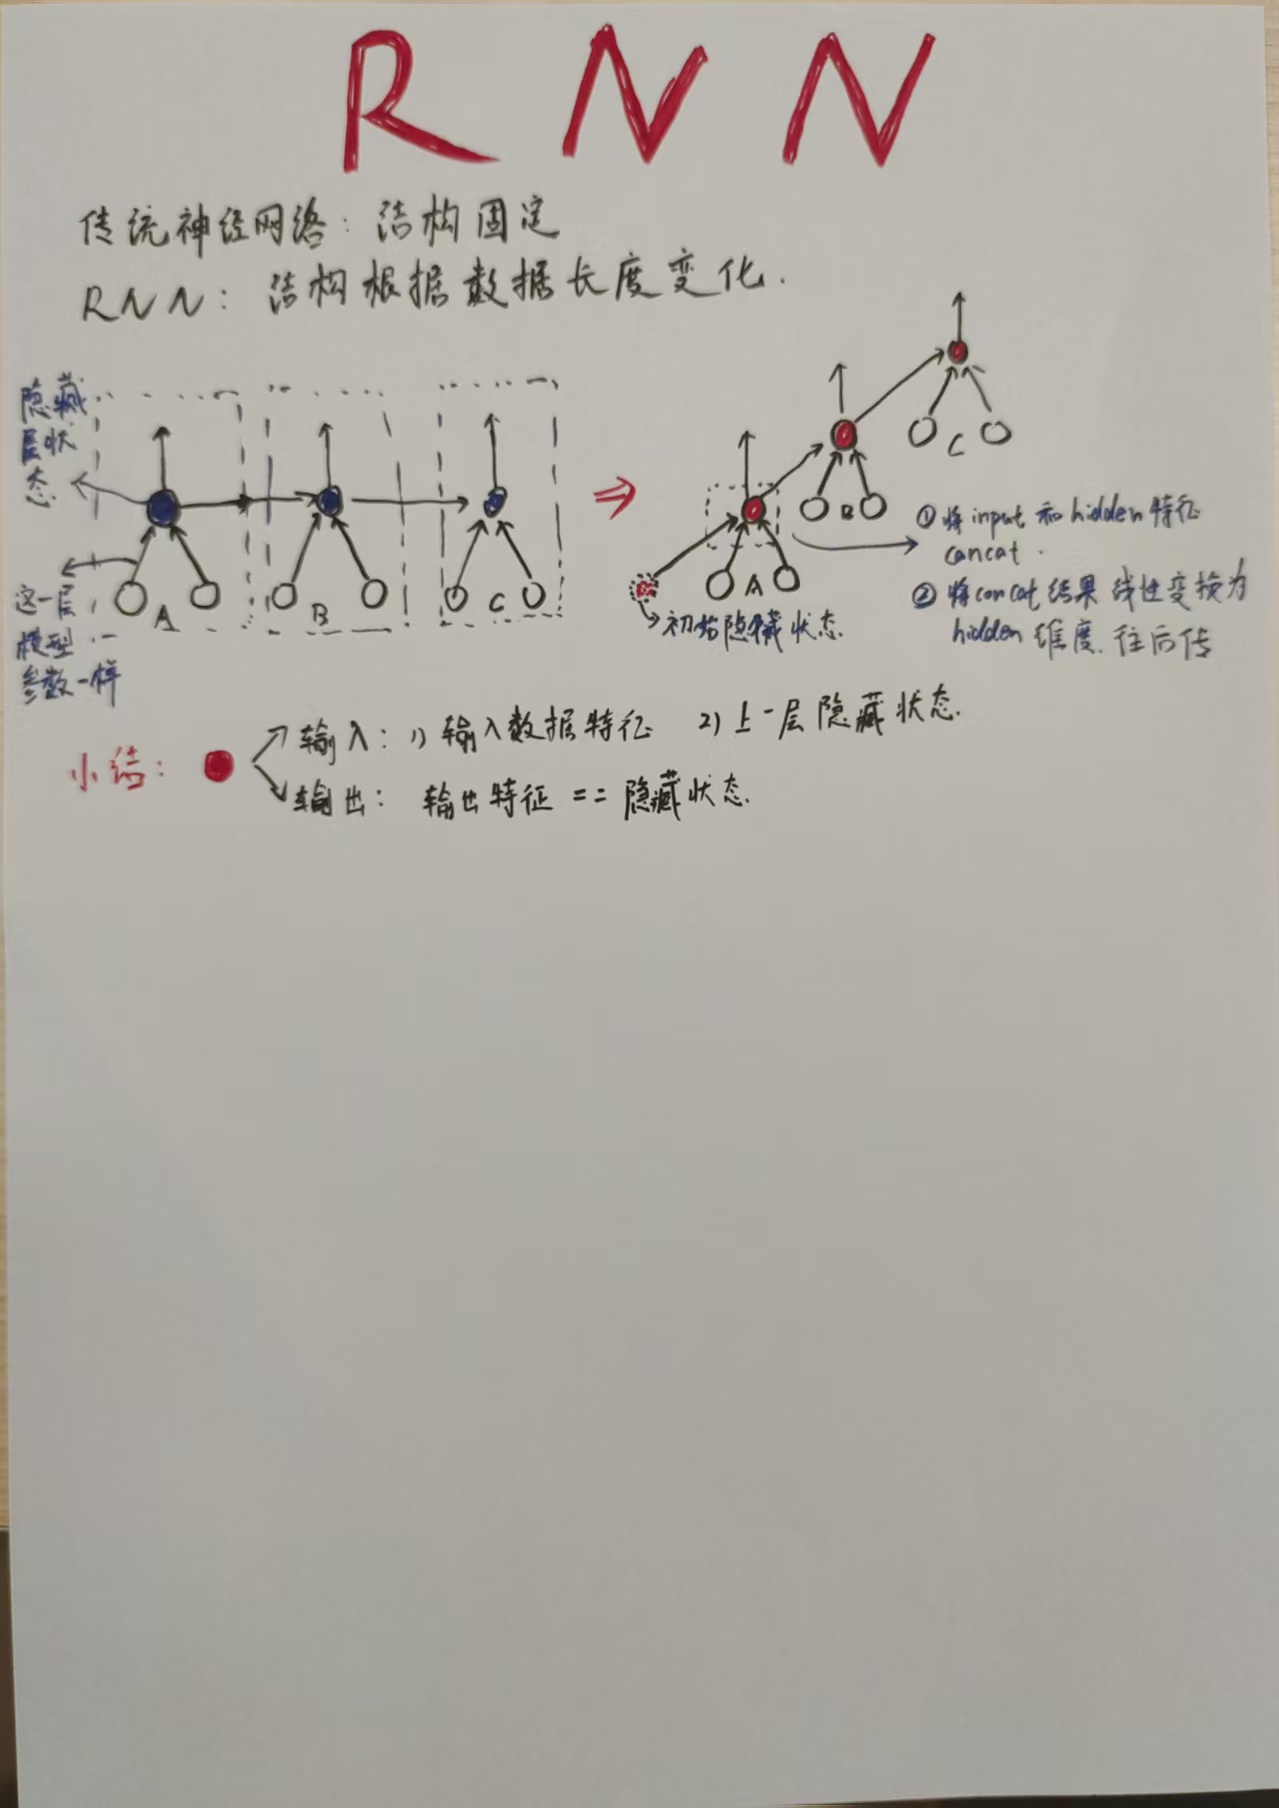 RNN
传统神经网络：结构固定
RNN：结构根据数据长度变化.
隐藏
层状
态
A
B
C
这一层
模型
参数一样
A
B
C
初始隐藏状态
① 将input 和 hidden 特征
cancat.
② 将concat 结果 线性变换为
hidden 维度.往后传
小结：
输入：1) 输入数据特征 2) 上一层隐藏状态.
输出：输出特征 == 隐藏状态.